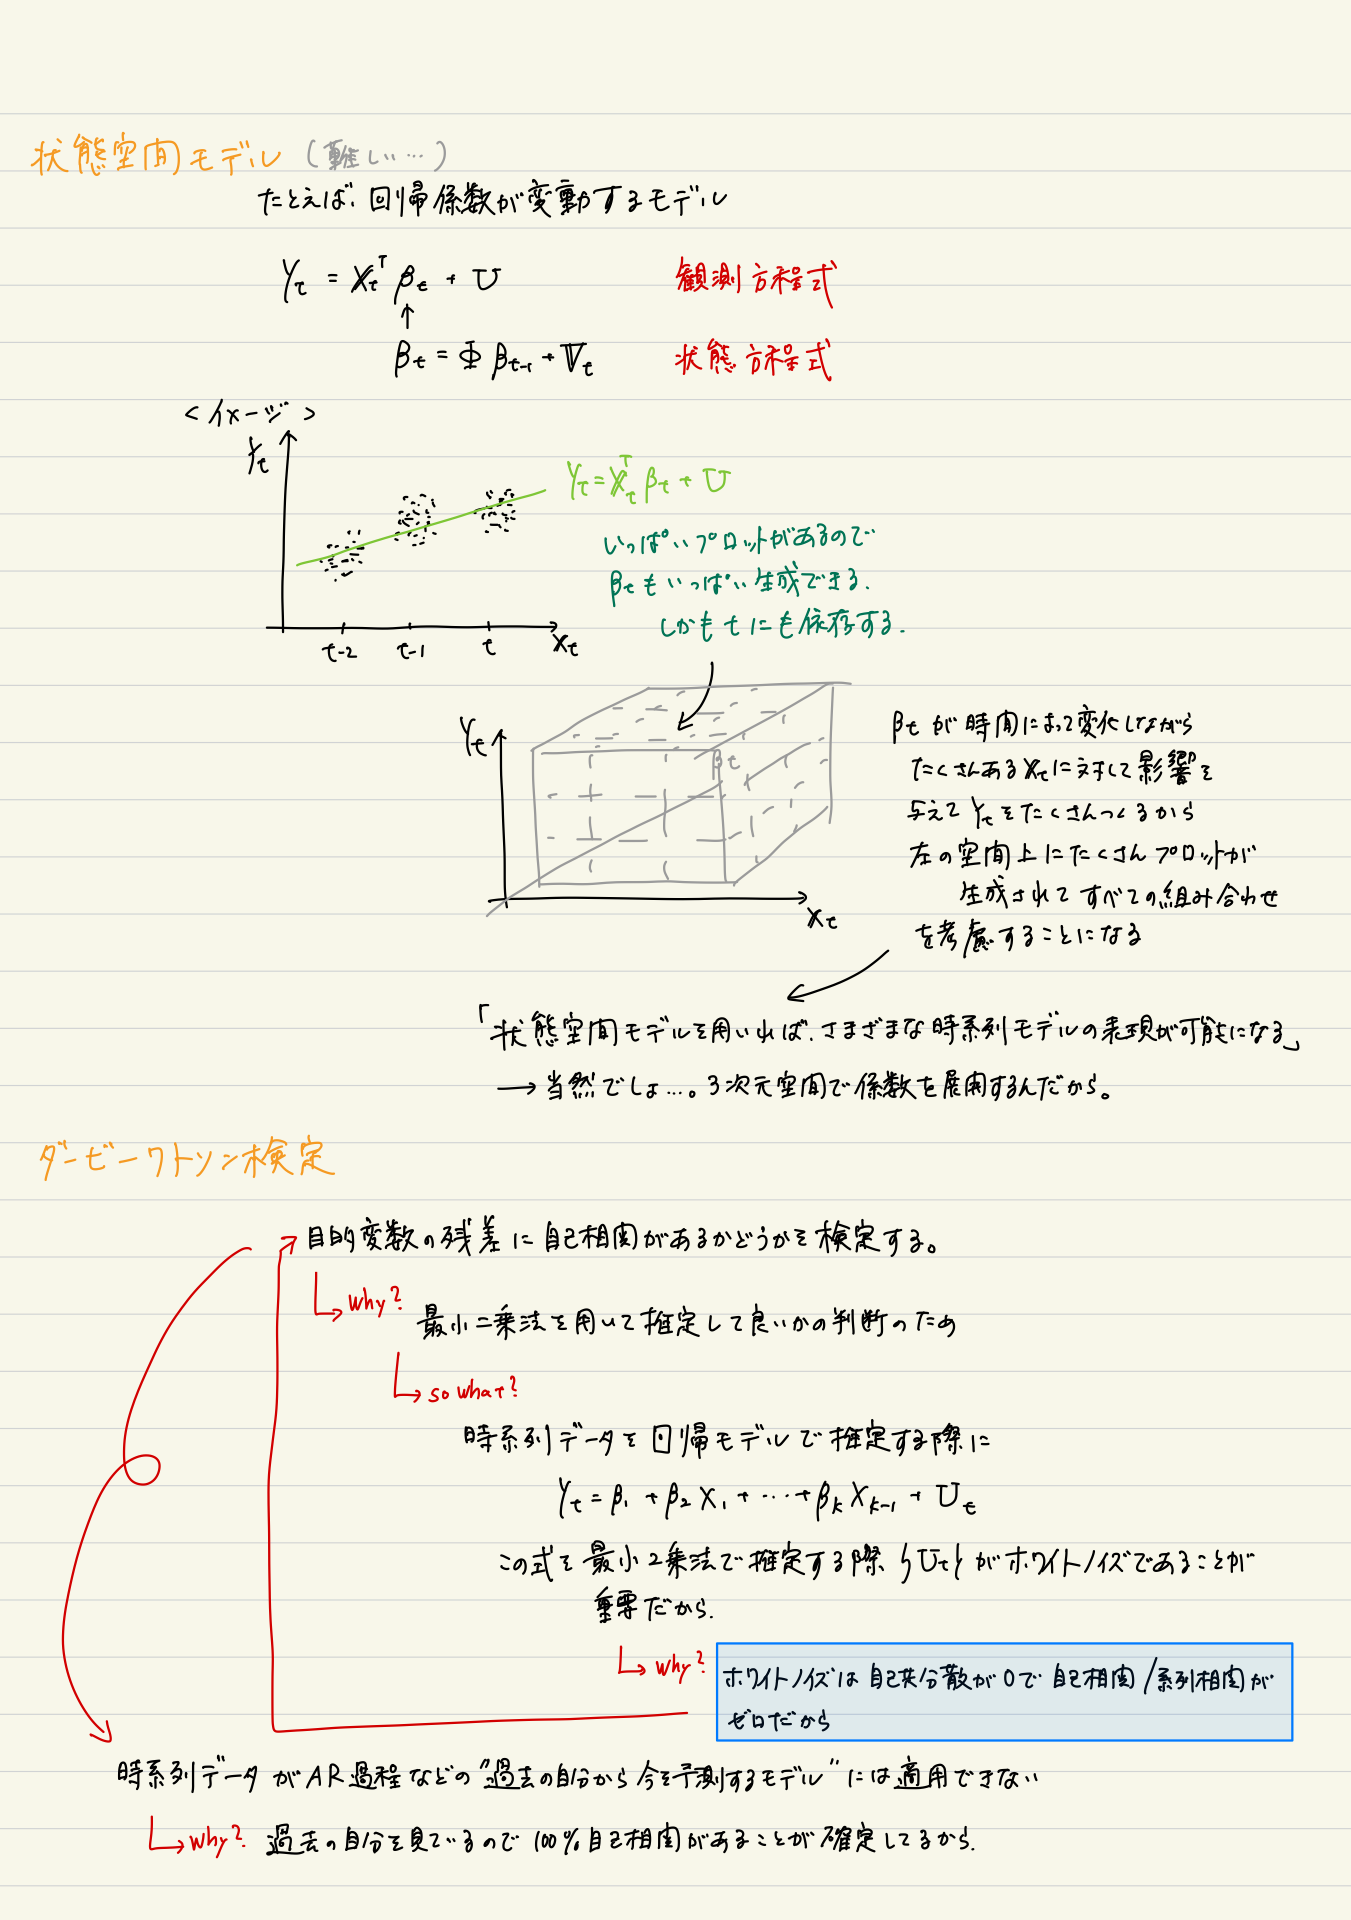 状態空間モデル (難しい…)
たとえば、回帰係数が変動するモデル
Yt = Xt^T βt + U 観測方程式
↑
βt = Φ βt-1 + Vt 状態方程式
<イメージ>
Yt
Yt = Xt^T βt + U
いっぱいプロットがあるので
βtもいっぱい生成できる.
しかも t にも依存する.
t-2 t-1 t Xt
Yt
βt
Xt
βt が時間によって変化しながら
たくさんある Xt に対して影響を
与えて Yt をたくさんつくるから
左の空間上にたくさんプロットが
生成されてすべての組み合わせ
を考慮することになる
「状態空間モデルを用いれば、さまざまな時系列モデルの表現が可能になる」
→ 当然でしょ…。3次元空間で係数を展開するんだから。
ダービーワトソン検定
目的変数の残差に自己相関があるかどうかを検定する。
why?
最小二乗法を用いて推定して良いかの判断のため
so what?
時系列データを回帰モデルで推定する際に
Yt = β1 + β2 X1 + … + βk Xk-1 + Ut
この式を最小2乗法で推定する際 {Ut} がホワイトノイズであることが
重要だから.
why?
ホワイトノイズは自己共分散が0で自己相関/系列相関が
ゼロだから
時系列データがAR過程などの"過去の自分から今を予測するモデル"には適用できない
why? 過去の自分を見ているので100%自己相関があることが確定してるから.